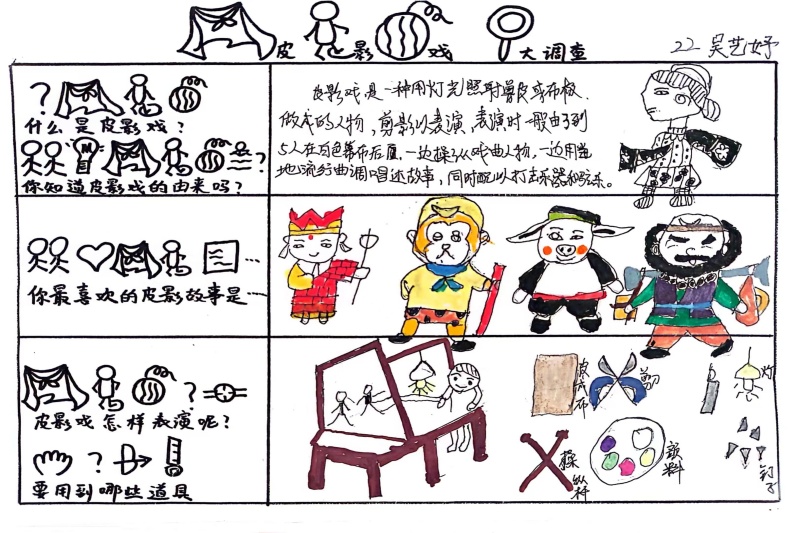 皮影戏大调查
22 吴艺妤
什么是皮影戏？
你知道皮影戏的由来吗？
皮影戏是一种用灯光照射兽皮或布板
做成的人物，剪影以表演，表演时一般由3到
5人在白色幕布后面，一边操纵戏曲人物，一边用当
地流行曲调唱述故事，同时配以打击乐器和弦乐。
你最喜欢的皮影故事是…
皮影戏怎样表演呢？
要用到哪些道具
皮或布
剪
灯
操纵杆
颜料
钉子